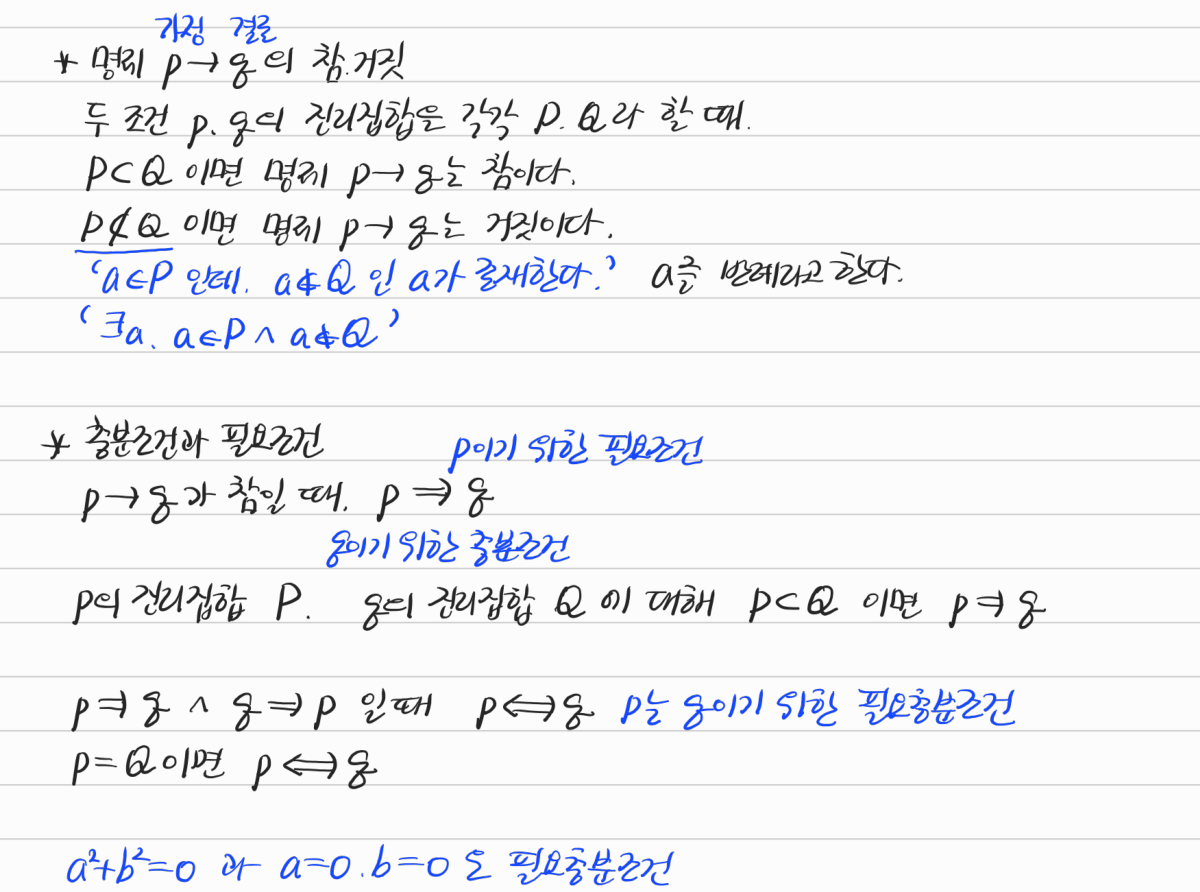 가정 결론
* 명제 p → q의 참.거짓
두 조건 p, q의 진리집합을 각각 P, Q라 할 때,
P⊂Q 이면 명제 p→q는 참이다.
P⊄Q 이면 명제 p→q는 거짓이다.
'a∈P 인데, a∉Q 인 a가 존재한다.' a를 반례라고 한다.
'∃a, a∈P ∧ a∉Q'
* 충분조건과 필요조건
p이기 위한 필요조건
p→q가 참일 때, p ⇒ q
q이기 위한 충분조건
p의 진리집합 P, q의 진리집합 Q에 대해 P⊂Q 이면 p⇒q
p⇒q ∧ q⇒p 일때 p⟺q p는 q이기 위한 필요충분조건
P=Q이면 p⟺q
a²+b²=0 과 a=0, b=0 도 필요충분조건